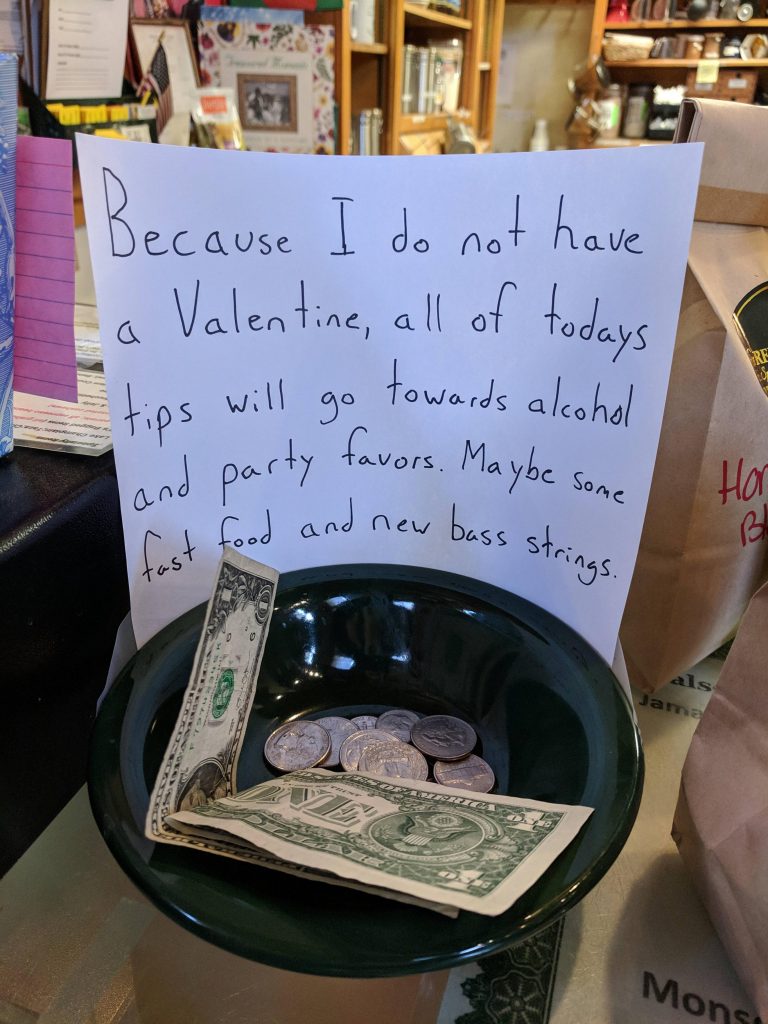 Because I do not have
a Valentine, all of todays
tips will go towards alcohol
and party favors. Maybe some
fast food and new bass strings.
OF AMERICA
ONE
Jama
Mons